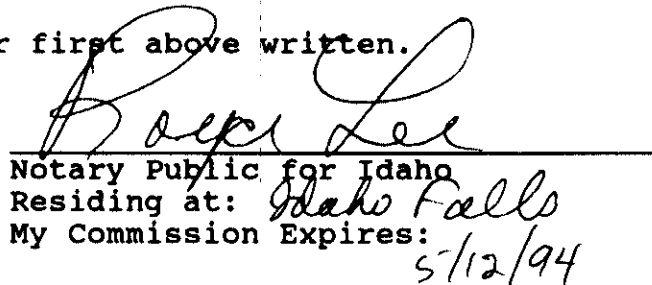 r first above written.
Roger Lee
Notary Public for Idaho
Residing at: Idaho Falls
My Commission Expires:
5/12/94